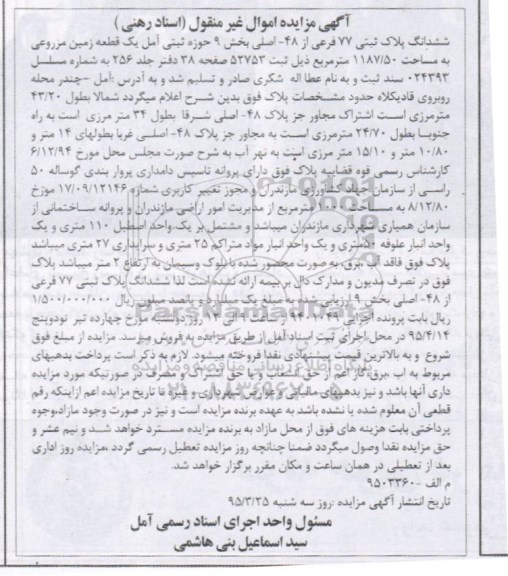 آگهی مزایده اموال غیر منقول (اسناد رهنی)
ششدانگ پلاک ثبتی ۷۷ فرعی از ۴۸- اصلی بخش ۹ حوزه ثبتی آمل یک قطعه زمین مزروعی
به مساحت ۱۱۸۷/۵۰ مترمربع ذیل ثبت ۵۲۷۵۳ صفحه ۳۸ دفتر جلد ۲۵۶ به شماره مسلسل
۰۲۴۳۹۳ سند ثبت و به نام عطا اله شکری صادر و تسلیم شد و به آدرس :آمل –چندر محله
روبروی قادیکلاه حدود مشخصات پلاک فوق بدین شرح اعلام میگردد شمالا بطول ۴۳/۲۰
مترمرزی است اشتراک مجاور جز پلاک ۴۸- اصلی شرقا بطول ۳۴ متر مرزی است به راه
جنوبا بطول ۲۴/۷۰ مترمرزی است به مجاور جز پلاک ۴۸- اصلی غربا بطولهای ۱۴ متر و
۱۰/۸۰ متر و ۱۵/۱۰ متر مرزی است به نهر آب به شرح صورت مجلس محل مورخ ۶/۱۲/۹۴
کارشناس رسمی قوه قضاییه پلاک فوق دارای پروانه تاسیس دامداری پروار بندی گوساله ۵۰
راسی از سازمان جهاد کشاورزی مازندران و مجوز تغییر کاربری شماره ۱۷/۰۹/۱۲۱۴۶ مورخ
۸/۱۲/۸۰ به مساحت مترمربع از مدیریت امور اراضی مازندران و پروانه ساختمانی از
سازمان همیاری شهرداری مازندران میباشد و مشتمل بر یک واحد اصطبل ۱۱۰ متری و یک
واحد انبار علوفه ۵۰متری و یک واحد انبار مواد متراکم ۲۵ متری و سرایداری ۲۷ متری میباشد
پلاک فوق فاقد آب ،برق، به صورت محصور شده با بلوک وسیمان به ارتفاع ۲ متر میباشد پلاک
فوق در تصرف مدیون و مدارک دال بر بیمه ارائه نشده است لذا ششدانگ پلاک ثبتی ۷۷ فرعی
از ۴۸- اصلی بخش ۹ ارزیابی شده به مبلغ یک میلیارد و پانصد میلیون ریال ۱/۵۰۰/۰۰۰/۰۰۰
ریال بابت پرونده اجرایی از ساعت ۹ الی ۱۲ روز دوشنبه مورخ چهارده تیر نودوپنج
۹۵/۴/۱۴ در محل اجرای ثبت اسناد آمل از طریق مزایده به فروش میرسد. مزایده از مبلغ فوق
شروع و به بالاترین قیمت پیشنهادی نقدا فروخته میشود. لازم به ذکر است پرداخت بدهیهای
مربوط به آب ،برق، گاز اعم از حق انشعاب و یا حق اشتراک و مصرف در صورتیکه مورد مزایده
داری آنها باشد و نیز بدهیهای مالیاتی و عوارض شهرداری و غیره تا تاریخ مزایده اعم ازاینکه رقم
قطعی آن معلوم شده یا نشده باشد به عهده برنده مزایده است و نیز در صورت وجود مازاد،وجوه
پرداختی بابت هزینه های فوق از محل مازاد به برنده مزایده مسترد خواهد شد و نیم عشر و
حق مزایده نقدا وصول میگردد ضمنا چنانچه روز مزایده تعطیل رسمی گردد ،مزایده روز اداری
بعد از تعطیلی در همان ساعت و مکان مقرر برگزار خواهد شد.
م الف -۹۵۰۳۳۶۰
تاریخ انتشار آگهی مزایده :روز سه شنبه ۹۵/۳/۲۵
مسئول واحد اجرای اسناد رسمی آمل
سید اسماعیل بنی هاشمی
ParsNamadData
پایگاه اطلاع رسانی مناقصه و مزایده